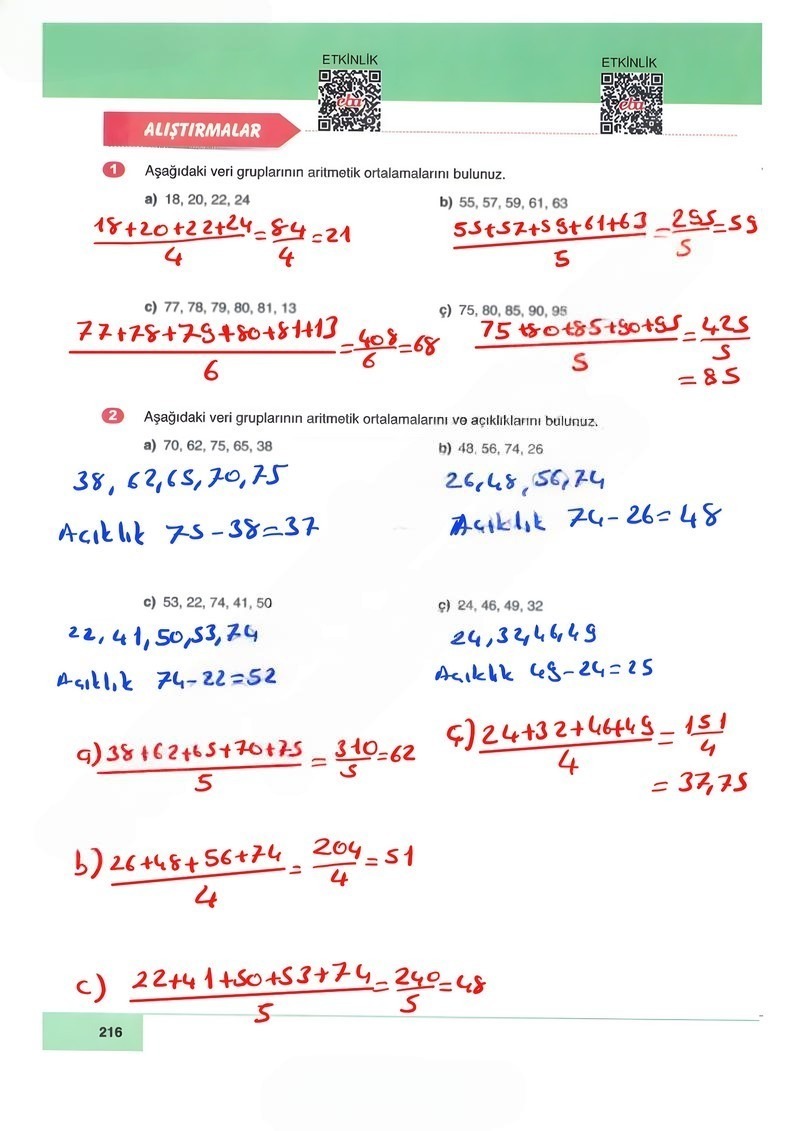 ETKİNLİK
ETKİNLİK
eba
eba
ALIŞTIRMALAR
1 Aşağıdaki veri gruplarının aritmetik ortalamalarını bulunuz.
a) 18, 20, 22, 24
18+20+22+24/4 = 84/4 = 21
b) 55, 57, 59, 61, 63
55+57+59+61+63/5 = 295/5 = 59
c) 77, 78, 79, 80, 81, 13
77+78+79+80+81+13/6 = 408/6 = 68
ç) 75, 80, 85, 90, 95
75+80+85+90+95/5 = 425/5
= 85
2 Aşağıdaki veri gruplarının aritmetik ortalamalarını ve açıklıklarını bulunuz.
a) 70, 62, 75, 65, 38
38, 62, 65, 70, 75
Açıklık 75-38=37
b) 48, 56, 74, 26
26, 48, 56, 74
Açıklık 74-26=48
c) 53, 22, 74, 41, 50
22, 41, 50, 53, 74
Açıklık 74-22=52
ç) 24, 46, 49, 32
24, 32, 46, 49
Açıklık 49-24=25
a) 38+62+65+70+75/5 = 310/5 = 62
ç) 24+32+46+49/4 = 151/4
= 37,75
b) 26+48+56+74/4 = 204/4 = 51
c) 22+41+50+53+74/5 = 240/5 = 48
216